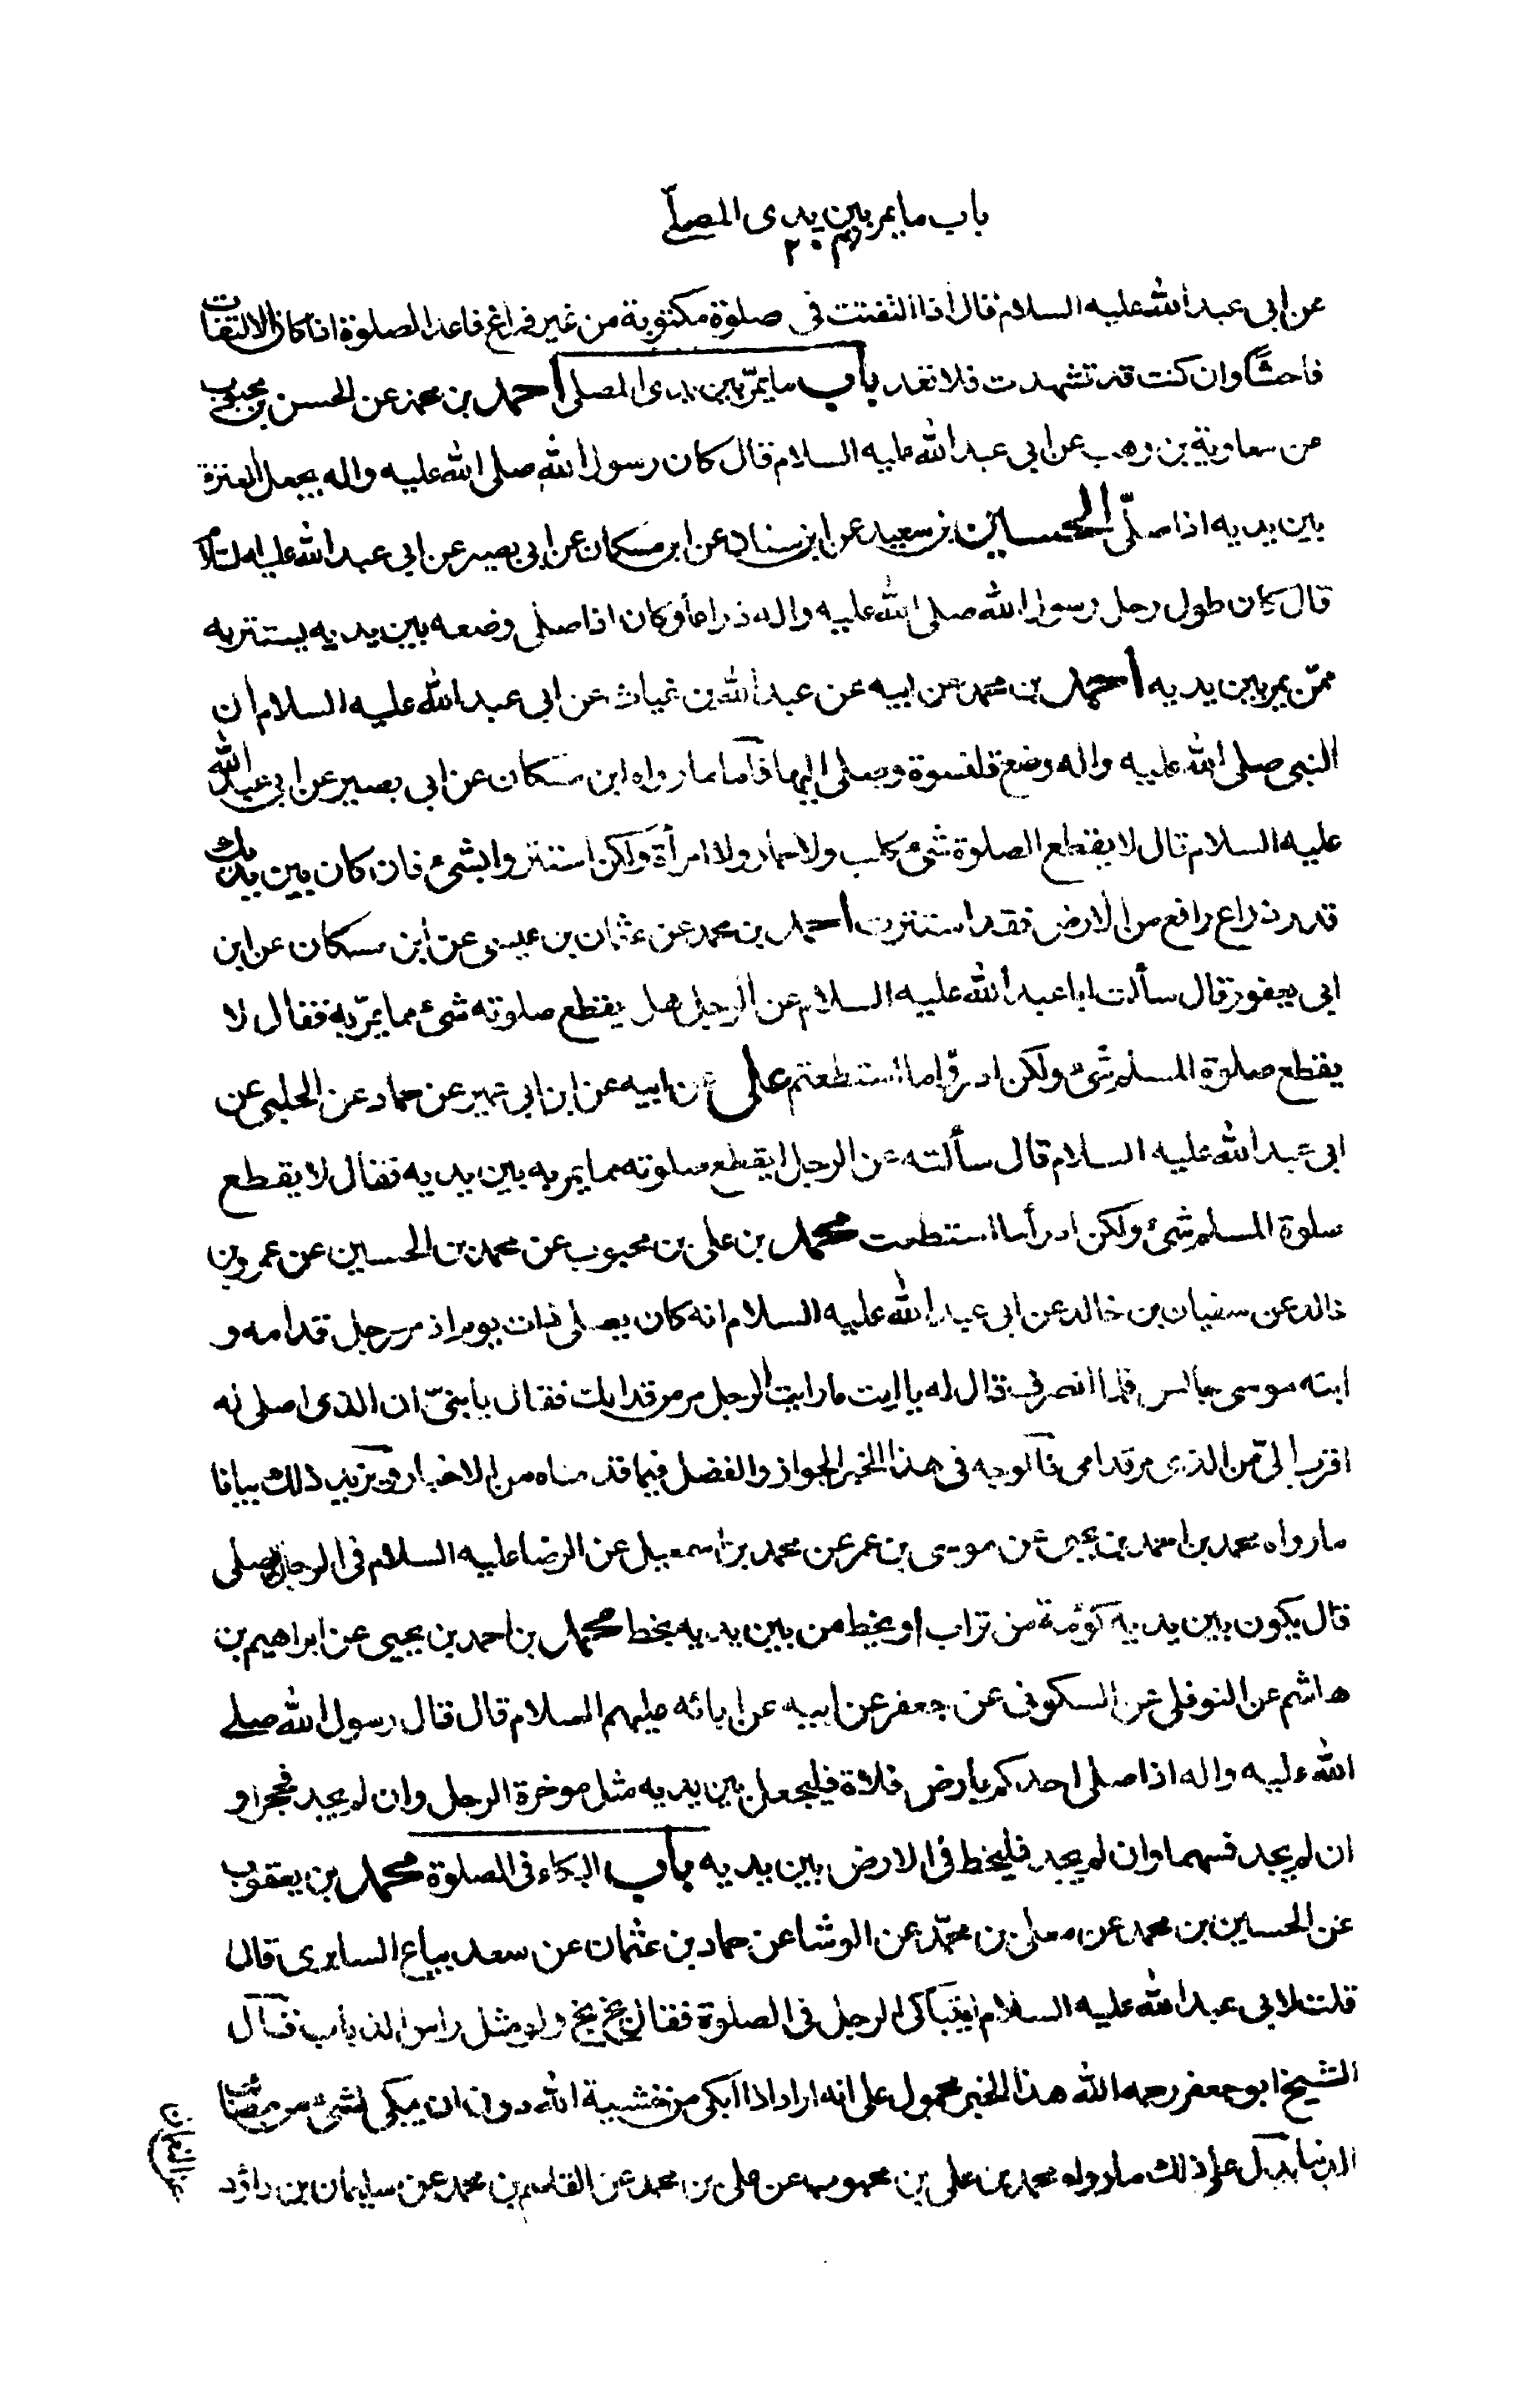 باب ما يمر بين يدى المصلّے
عن ابى عبد الله عليه السلام قال اذا التفتت فى صلوة مكتوبة من غير فراغ فاعد الصلوة اذا كان الالتفات
فاحشًا وان كنت قد تشهدت فلا تعد باب ما يمرّ بين يدى المصلى احمد بن محمد عن الحسن بن محبوب
عن معاوية بن وهب عن ابى عبد الله عليه السلام قال كان رسول الله صلى الله عليه واله يجعل العنزة
بين يديه اذا صلّى الحسين بن سعيد عن ابن سنان عن ابن مسكان عن ابى بصير عن ابى عبد الله عليه السلام
قال كان طول رحل رسول الله صلى الله عليه واله ذراعاً وكان اذا صلى وضعه بين يديه يستتر به
ممّن يمر بين يديه احمد بن محمد عن ابيه عن عبد الله بن غياث عن ابى عبد الله عليه السلام ان
النبى صلى الله عليه واله وضع قلنسوة وصلى اليها فاما ما رواه ابن مسكان عن ابى بصير عن ابى عبد الله
عليه السلام قال لا يقطع الصلوة شئ كلب ولا حمار ولا امرأة ولكن استتروا بشئ فان كان بين يديك
قدر ذراع رافع من الارض فقد استترت احمد بن محمد عن عثمان بن عيسى عن ابن مسكان عن ابن
ابى يعفور قال سألت ابا عبد الله عليه السلام عن الرجل هل يقطع صلوته شئ مما يمرّ به فقال لا
يقطع صلوة المسلم شئ ولكن ادرؤا ما استطعتم على عن ابيه عن ابن ابى عمير عن حماد عن الحلبى عن
ابى عبد الله عليه السلام قال سألته عن الرجل ايقطع صلوته مما يمر به بين يديه فقال لا يقطع
صلوة المسلم شئ ولكن ادرأ ما استطعت محمد بن على بن محبوب عن محمد بن الحسين عن عمرو بن
خالد عن سفيان بن خالد عن ابى عبد الله عليه السلام انه كان يصلى ذات يوم اذ مر رجل قدامه و
ابنه موسى جالس فلما انصرف قال له يا ابت ما رايت الرجل مر قدامك فقال يا بنىّ ان الذى اصلى له
اقرب الىّ من الذى مر قدامى فالوجه فى هذا الخبر الجواز والفضل فيما قدمناه من الاخبار ويزيد ذلك بيانا
ما رواه محمد بن احمد بن يحيى عن موسى بن عمر عن محمد بن اسمعيل عن الرضا عليه السلام فى الرجل يصلى
قال يكون بين يديه كومة من تراب او يخط من بين يديه بخط محمد بن احمد بن يحيى عن ابراهيم بن
هاشم عن النوفلى عن السكونى عن جعفر عن ابيه عن ابائه عليهم السلام قال قال رسول الله صلے
الله عليه واله اذا صلى احدكم بارض فلاة فليجعل بين يديه مثل موخرة الرحل وان لم يجد فحجرا و
ان لم يجد فسهما وان لم يجد فليخط فى الارض بين يديه باب البكاء فى الصلوة محمد بن يعقوب
عن الحسين بن محمد عن معلى بن محمّد عن الوشا عن حماد بن عثمان عن سعد بياع السابرى قال
قلت لابى عبد الله عليه السلام ايتباكى الرجل فى الصلوة فقال بخ بخ ولو مثل راس الذباب فقال
الشيخ ابو جعفر رحمه الله هذا الخبر محمول على انه اراد اذا ابكى من خشية الله دون ان يبكى لشئ من مصائب
الدنيا يدل على ذلك ما رواه محمد بن على بن محبوب عن على بن محمد عن القاسم بن محمد عن سليمان بن داؤد